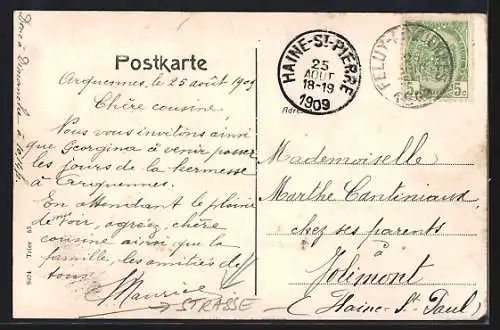 Postkarte
Arquennes, le 25 août 1909
Chère cousine,
Nous vous invitons ainsi
que Georgina à venir passer
les jours de la kermesse
à Arquennes.
En attendant le plaisir
de voir, agréez, chère
cousine ainsi que la
famille, les amitiés de
tous.
Maurice
STRASSE
HAINE-ST-PIERRE
25
AOUT
18-19
1909
5c
Mademoiselle
Marthe Cantiniaux
chez ses parents
à
Jolimont
(Haine-St-Paul)